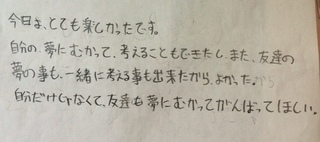 今日は、とても楽しかったです。
自分の、夢にむかって、考えることもできたし、また、友達の
夢の事も、一緒に考える事も出来たから、よかった。
自分だけじゃなくて、友達も夢にむかってがんばってほしい。